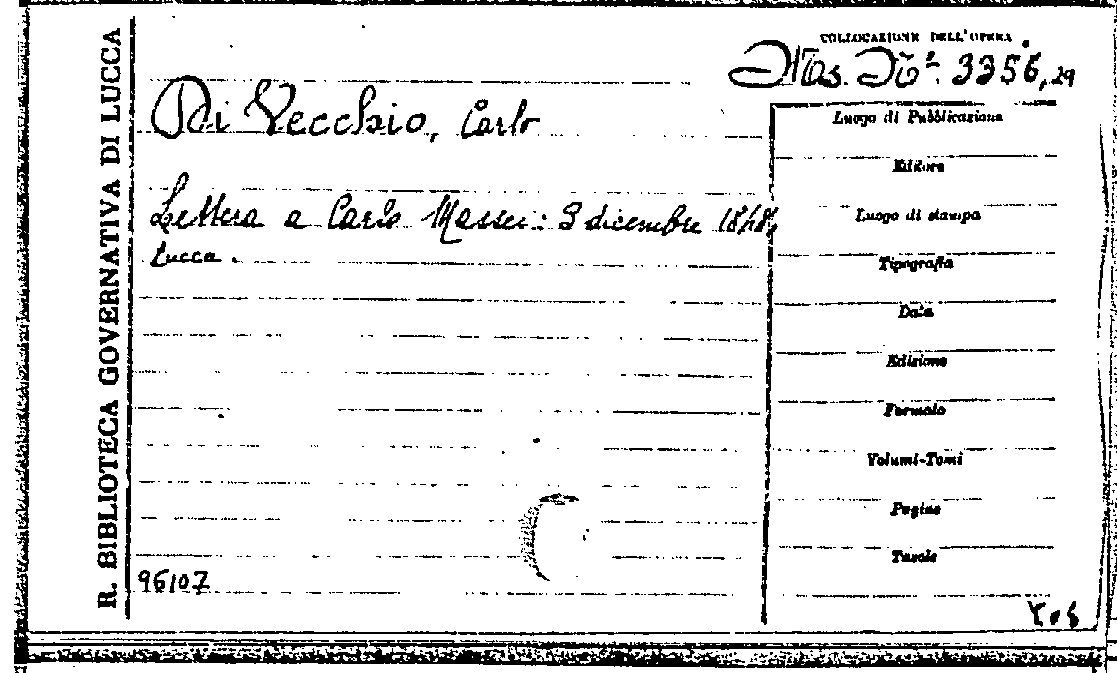 R. BIBLIOTECA GOVERNATIVA DI LUCCA
COLLOCAZIONE DELL'OPERA
Ms. N°. 3356,29
Di Vecchio, Carlo
Lettera a Carlo Massei: 3 dicembre 1848,
Lucca.
Luogo di Pubblicazione
Editore
Luogo di stampa
Tipografia
Data
Edizione
Formato
Volumi-Tomi
Pagine
Tavole
96107